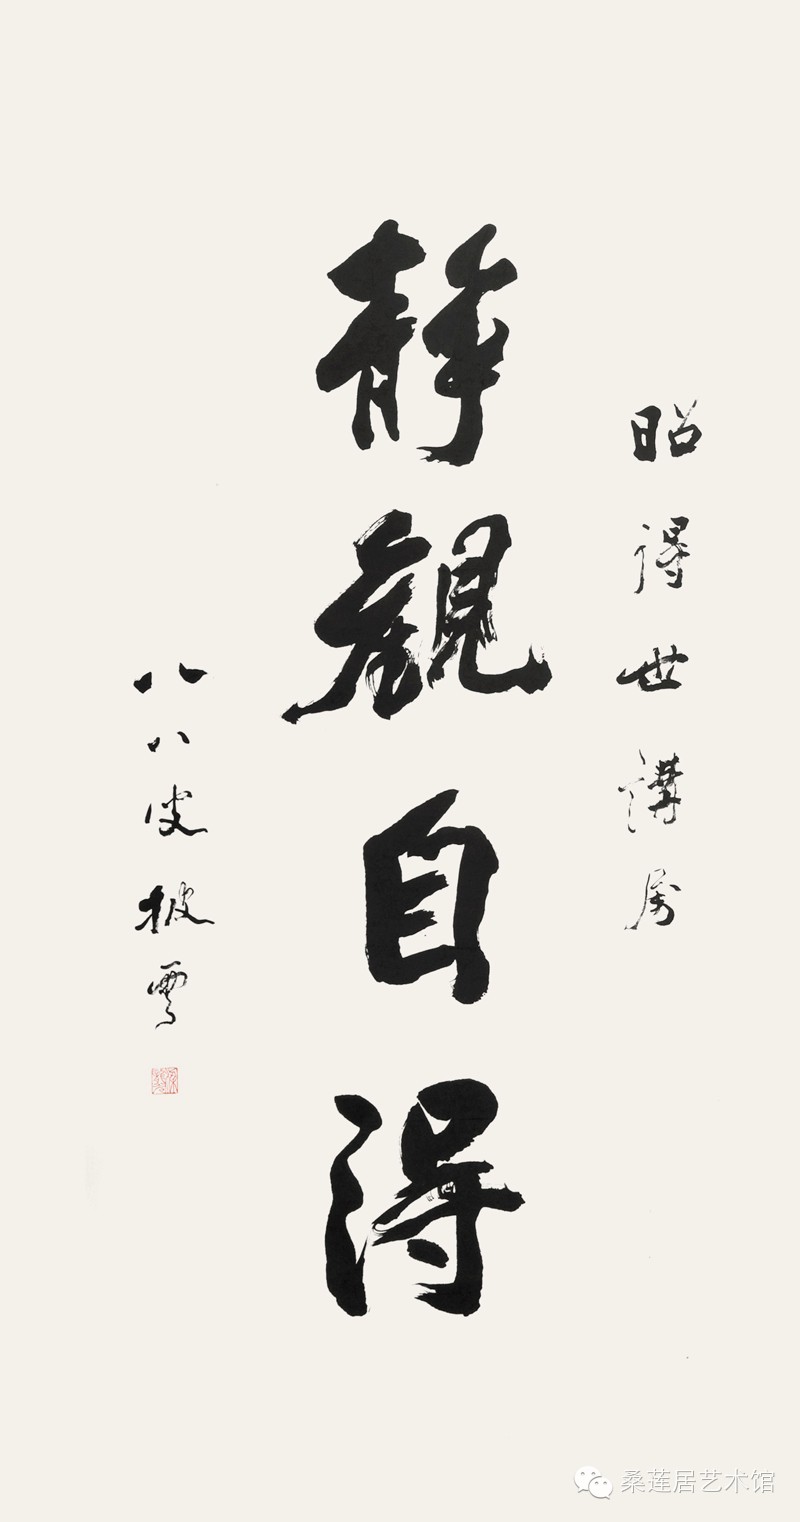 昭得世講屬
靜觀自得
八八叟披雲
桑莲居艺术馆